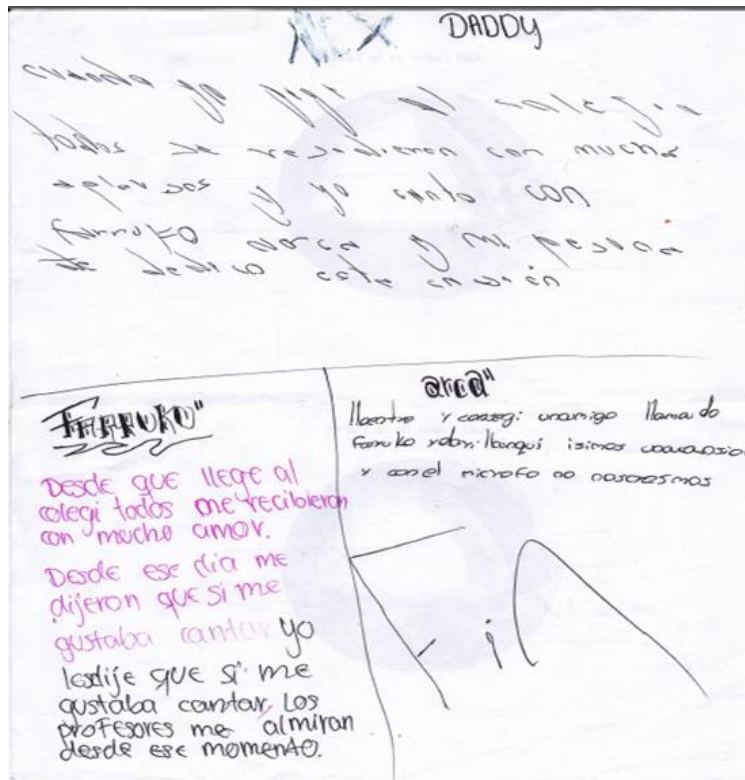 ALEX DADDY
cuando yo llege al colegio
todos me recidieron con mucha
aplausos y yo canto con
farruko arca y mi persona
te dedico esta canción
FARRUKO"
Desde que llege al
colegi todos me recibieron
con mucho amor.
Desde ese dia me
dijeron que si me
gustaba cantar yo
lesdije que si me
gustaba cantar, Los
profesores me almiran
desde ese momento.
arca"
y conseg: unamigo llamado
Farruko isimos
y con el microfo no
Fin